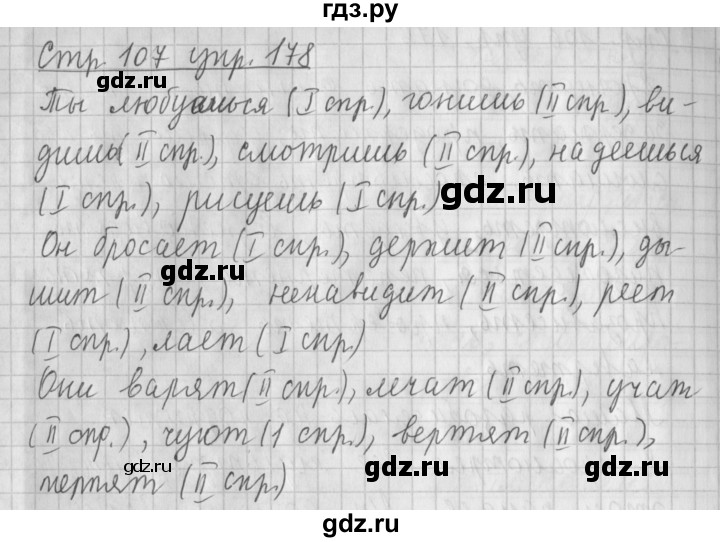 гдз.ру
Стр. 107 упр. 178
gdz.ru
Ты любуешься (I спр.), гонишь (II спр.), ви-
дишь (II спр.), смотришь (II спр.), надеешься
(I спр.), рисуешь (I спр.)
gdz.ru
Он бросает (I спр.), держит (II спр.), ды-
gdz.ru
шит (II спр.), ненавидит (II спр.), реет
(I спр.), лает (I спр)
Они варят (II спр.), лечат (II спр.), учат
(II спр.), чуют (1 спр.), вертят (II спр.),
gdz.ru gdz.ru
терпят (II спр.)
gdz.ru